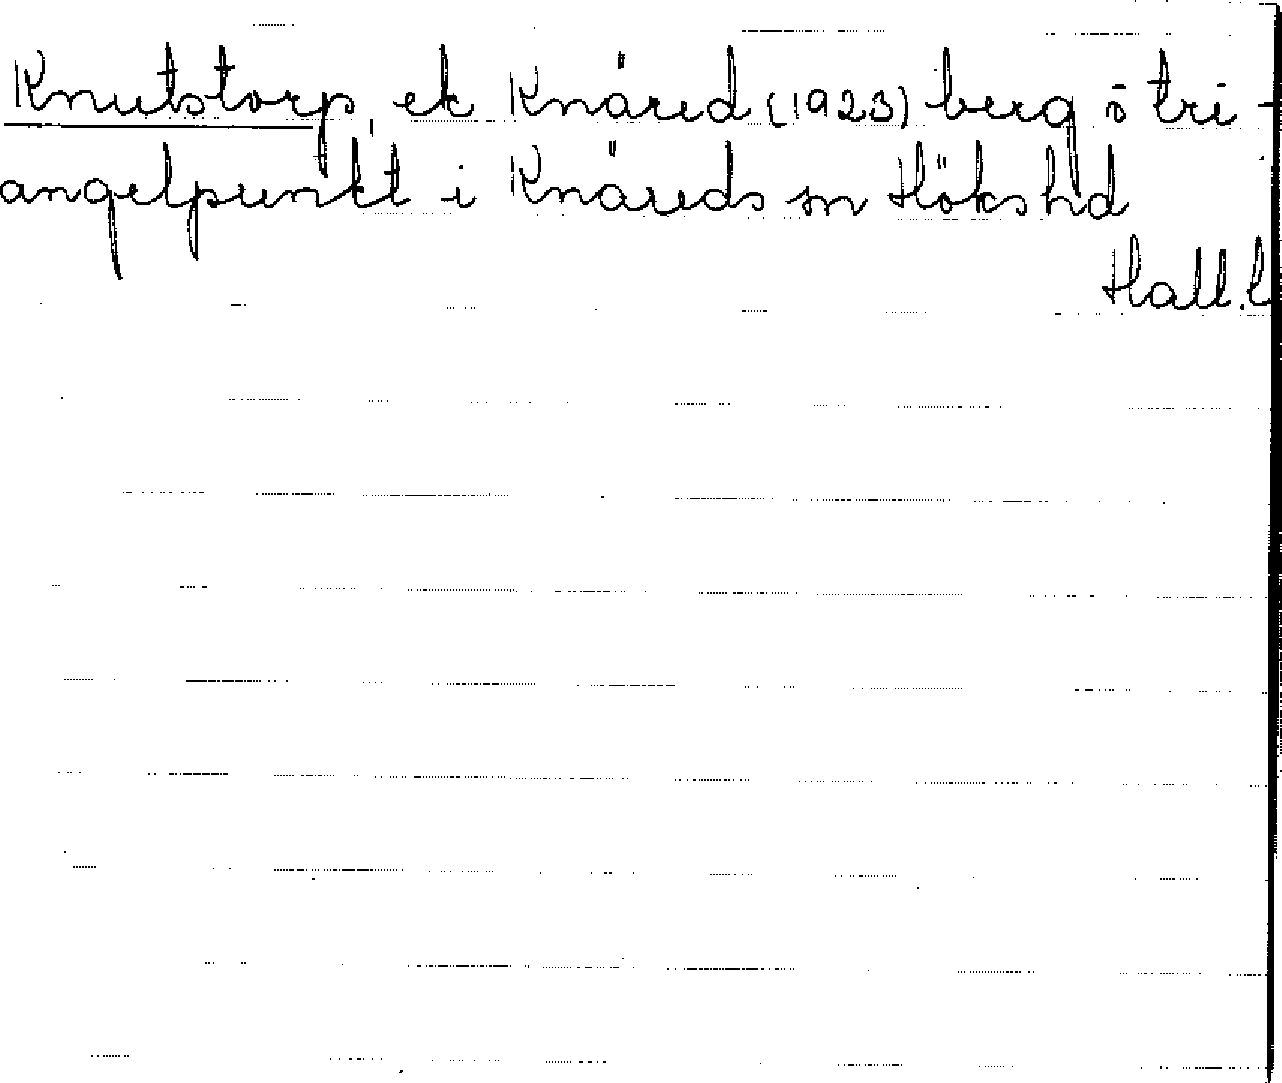 Knutstorp, ek Knäred (1923) berg ö tri-
angelpunkt i Knäreds sn Höks hd
Hall. l